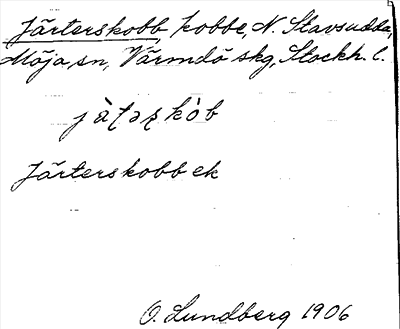 Järterskobb, kobbe, N. Stavsudda,
Möja sn, Värmdö skg, Stockh. l.
Järterskobb ek
O. Lundberg 1906